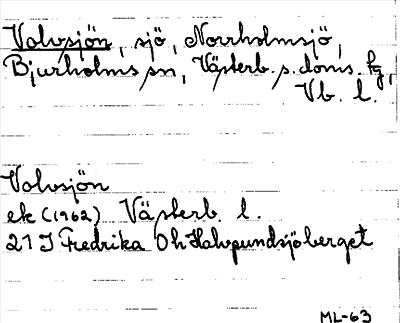 Volvsjön, sjö, Norrholmsjö,
Bjurholms sn, Västerb. s. doms. hg,
Vb. l.
Volvsjön
ek (1962) Västerb. l.
21 J Fredrika 0 h Halvpundsjöberget
ML-63